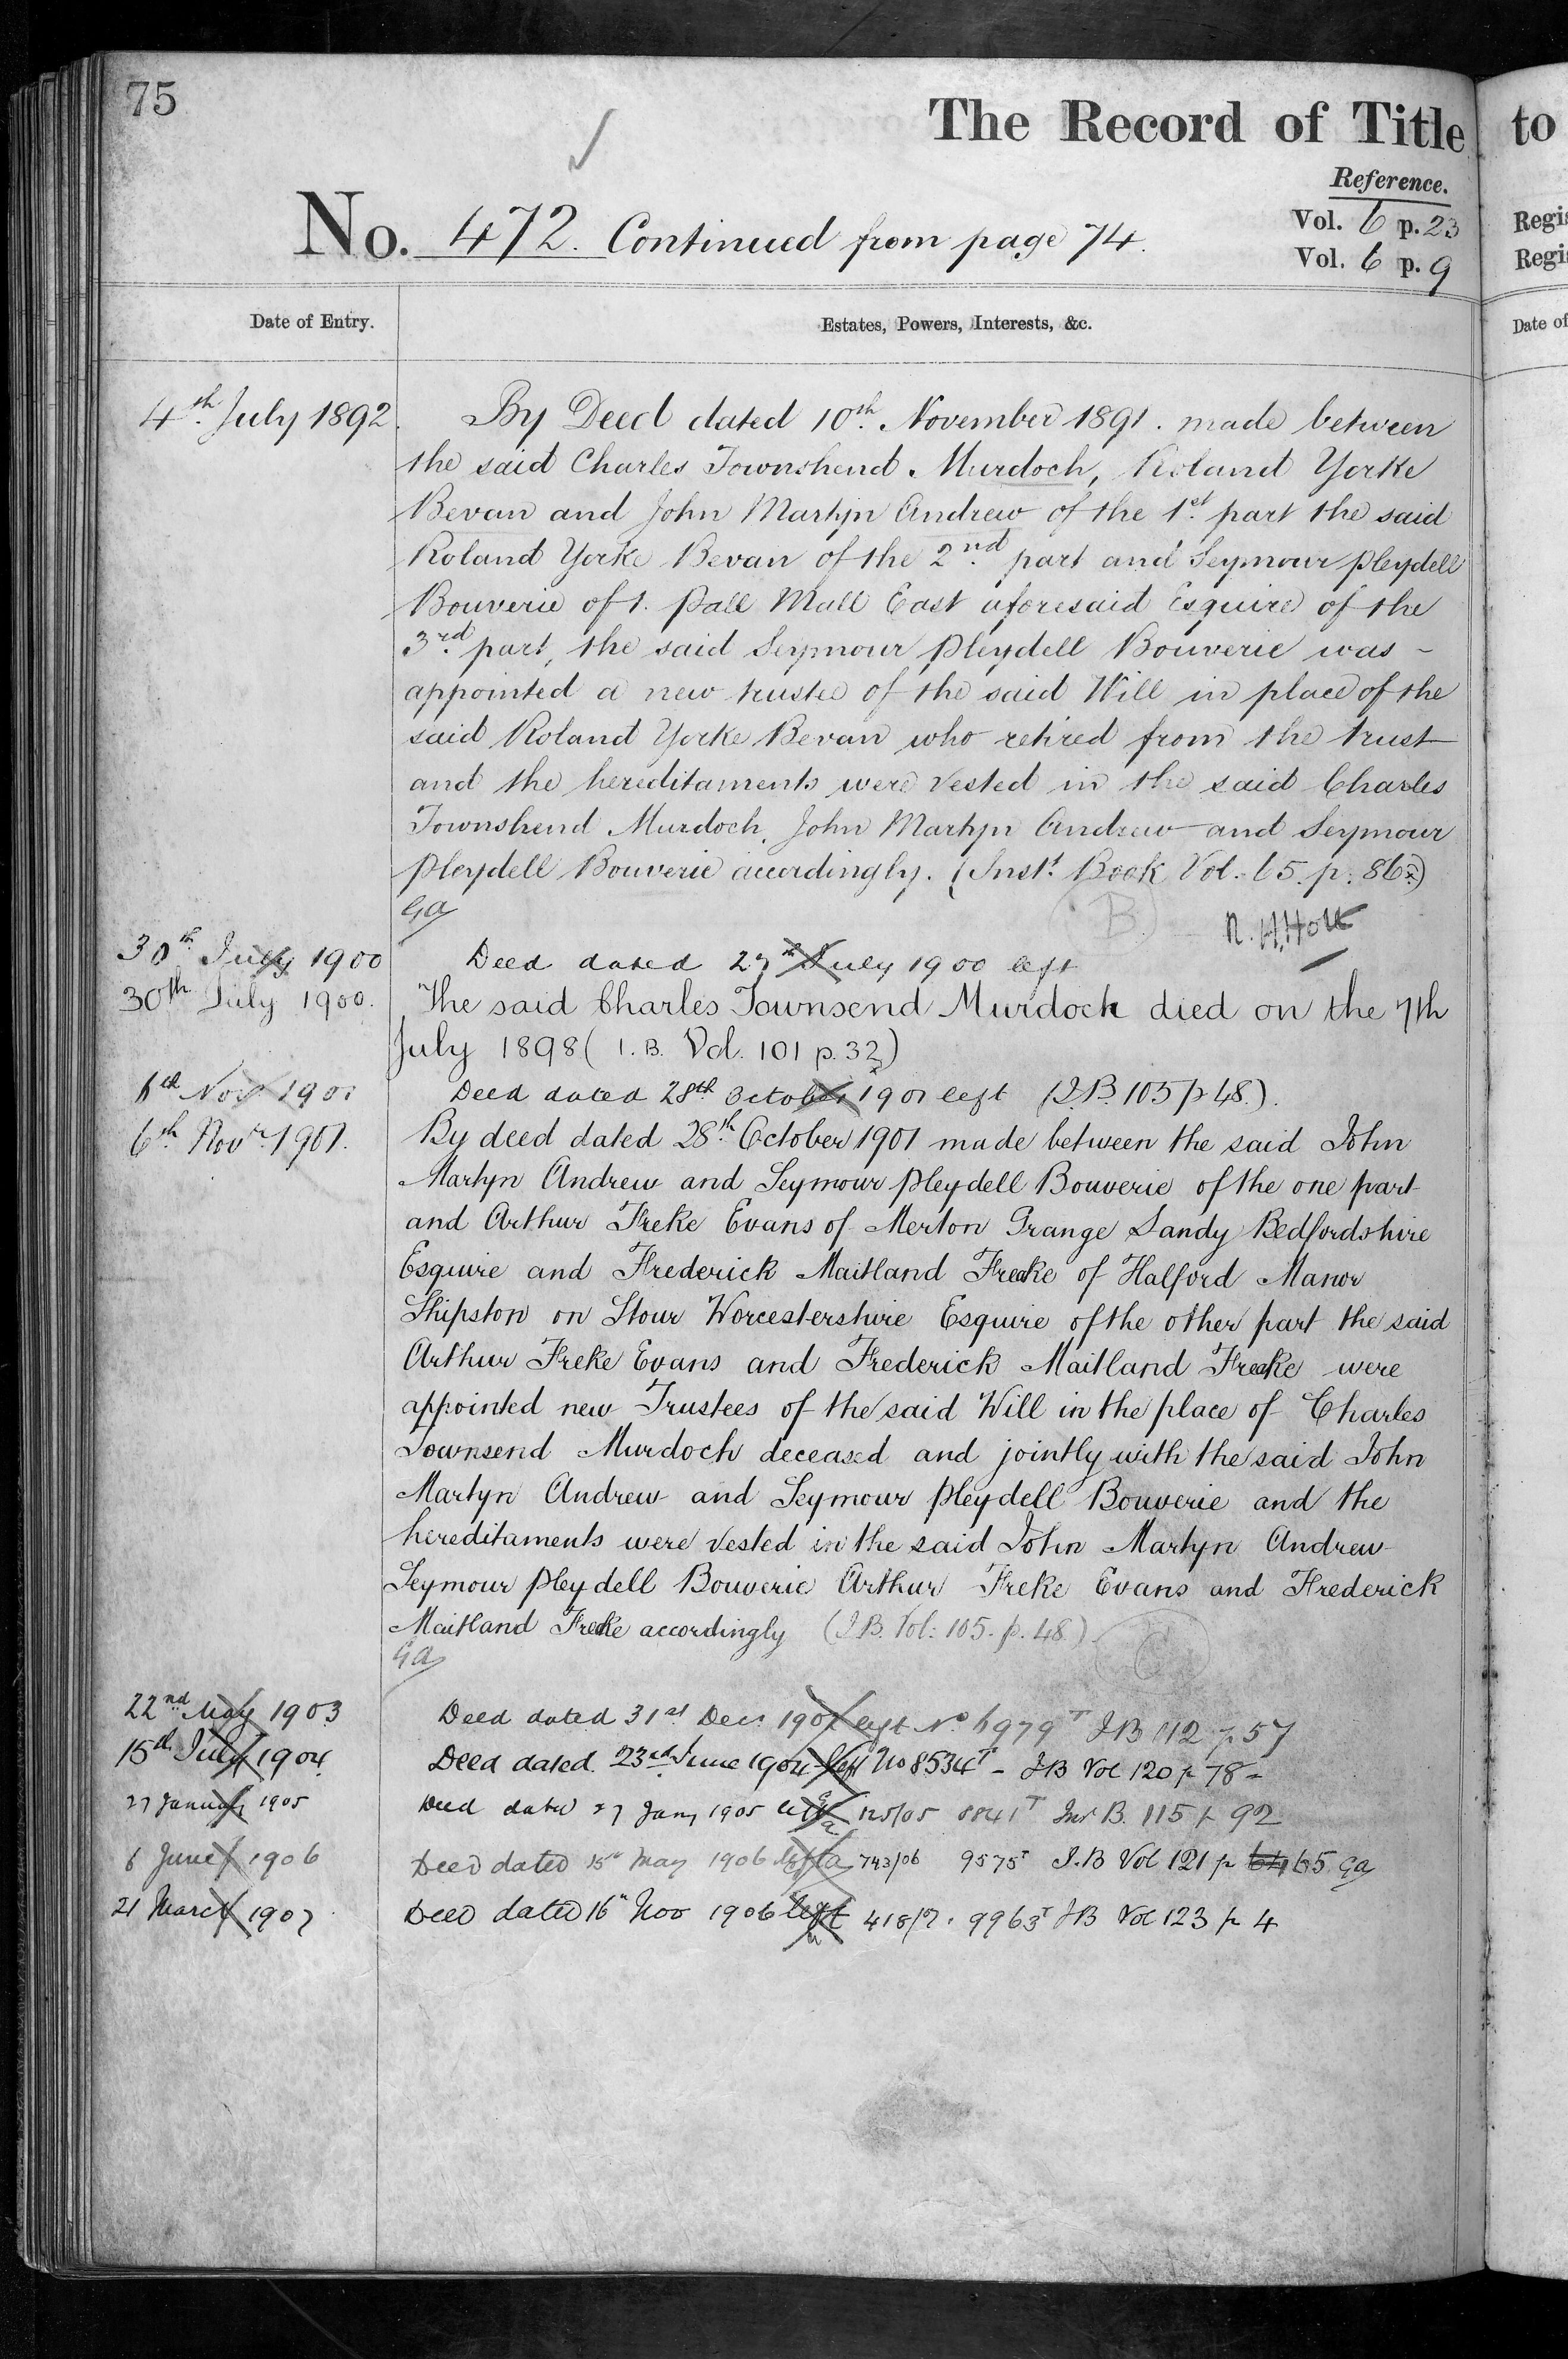 75
The Record of Title
to
Reference.
No. 472. Continued from page 74.
Vol. 6 p. 23
Vol. 6 p. 9
Date of Entry.
Estates, Powers, Interests, &c.
Date of
4th July 1892.
By Deed dated 10th November 1891. made between
the said Charles Townshend Murdoch, Roland Yorke
Bevan and John Martyn Andrew of the 1st part the said
Roland Yorke Bevan of the 2nd part and Seymour Pleydell
Bouverie of 1. Pall Mall East aforesaid Esquire of the
3rd part, the said Seymour Pleydell Bouverie was -
appointed a new trustee of the said Will in place of the
said Roland Yorke Bevan who retired from the trust
and the hereditaments were vested in the said Charles
Townshend Murdoch, John Martyn Andrew and Seymour
Pleydell Bouverie accordingly. (Inst. Book Vol. 65. p. 86.)
GA
B
30th July 1900
Deed dated 27th July 1900 left
30th July 1900.
The said Charles Townsend Murdoch died on the 7th
July 1898 (I.B. Vol. 101 p. 32)
6th Nov 1901
Deed dated 28th October 1901 left (I.B. 105 p 48.)
6th Novr 1901.
By deed dated 28th October 1901 made between the said John
Martyn Andrew and Seymour Pleydell Bouverie of the one part
and Arthur Freke Evans of Merton Grange Sandy Bedfordshire
Esquire and Frederick Maitland Freake of Halford Manor
Shipston on Stour Worcestershire Esquire of the other part the said
Arthur Freke Evans and Frederick Maitland Freake were
appointed new Trustees of the said Will in the place of Charles
Townsend Murdoch deceased and jointly with the said John
Martyn Andrew and Seymour Pleydell Bouverie and the
hereditaments were vested in the said John Martyn Andrew
Seymour Pleydell Bouverie Arthur Freke Evans and Frederick
Maitland Freake accordingly (I.B. Vol: 105. p. 48.)
GA
22nd May 1903
Deed dated 31st Decr 1902 left No 6979T IB 112 p 57
15th July 1904
Deed dated 23rd June 1904 left No 8534T - IB Vol 120 p 78 -
27 January 1905
Deed dated 27 Jany 1905 left 125/05 8841T Ins B. 115 p 92
6 June 1906
Deed dated 15th May 1906 left 743/06 9575T I.B Vol 121 p 64 65 GA
21 March 1907
Deed dated 16th Nov 1906 left 418/7. 9963T IB Vol 123 p 4